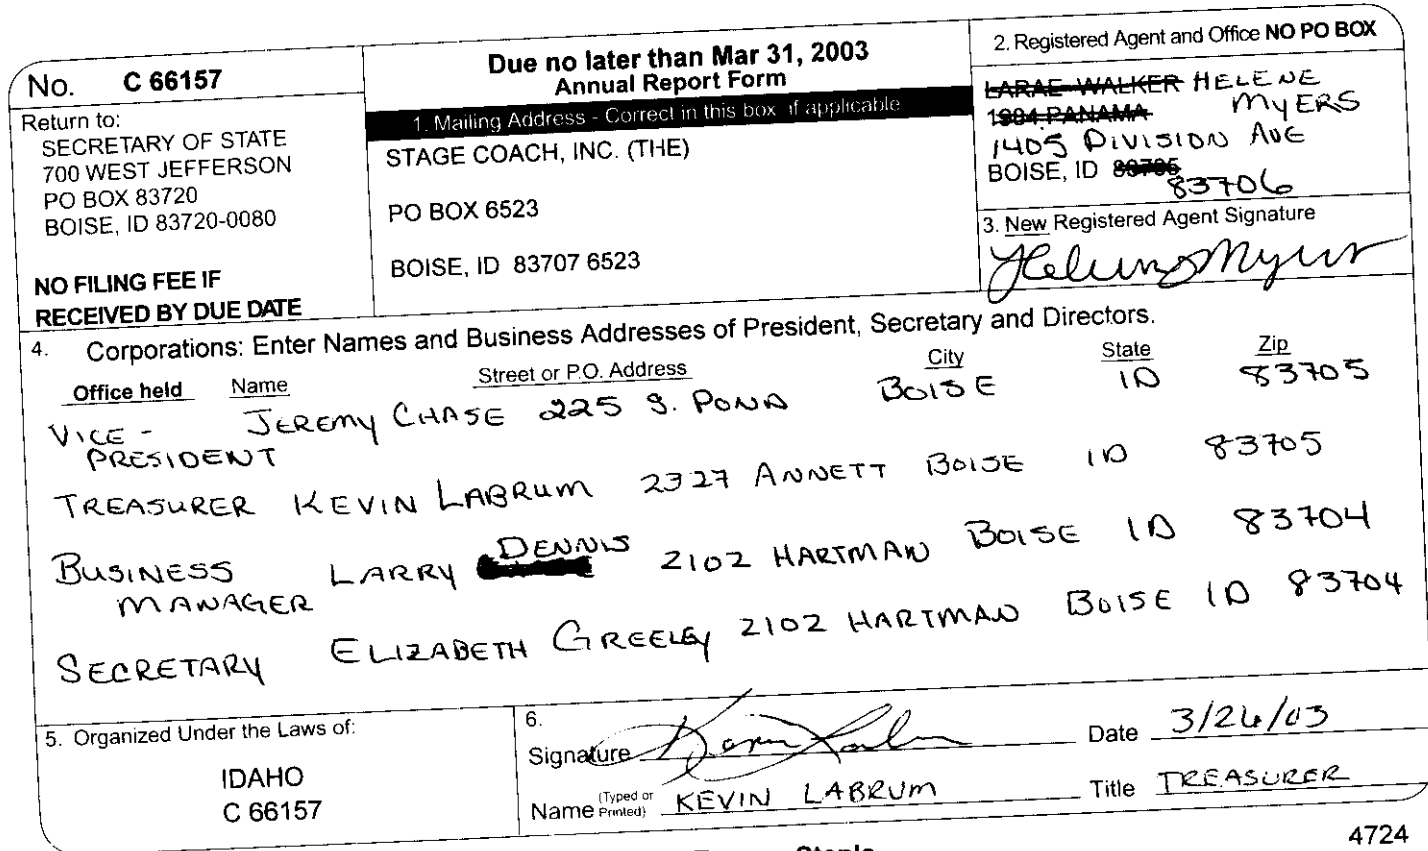 No. C 66157
Return to:
SECRETARY OF STATE
700 WEST JEFFERSON
PO BOX 83720
BOISE, ID 83720-0080
NO FILING FEE IF
RECEIVED BY DUE DATE
Due no later than Mar 31, 2003
Annual Report Form
1. Mailing Address - Correct in this box if applicable
STAGE COACH, INC. (THE)
PO BOX 6523
BOISE, ID 83707 6523
2. Registered Agent and Office NO PO BOX
LARAE WALKER HELENE
1984 PANAMA MYERS
1405 DIVISION AVE
BOISE, ID 83705
83706
3. New Registered Agent Signature
Helene Myers
4. Corporations: Enter Names and Business Addresses of President, Secretary and Directors.
Office held Name Street or P.O. Address City State Zip
VICE - JEREMY CHASE 225 S. POND BOISE ID 83705
PRESIDENT
TREASURER KEVIN LABRUM 2327 ANNETT BOISE ID 83705
BUSINESS LARRY DENNIS 2102 HARTMAN BOISE ID 83704
MANAGER
SECRETARY ELIZABETH GREELEY 2102 HARTMAN BOISE ID 83704
5. Organized Under the Laws of:
IDAHO
C 66157
6.
Signature Date 3/26/03
Name (Typed or Printed) KEVIN LABRUM Title TREASURER
4724